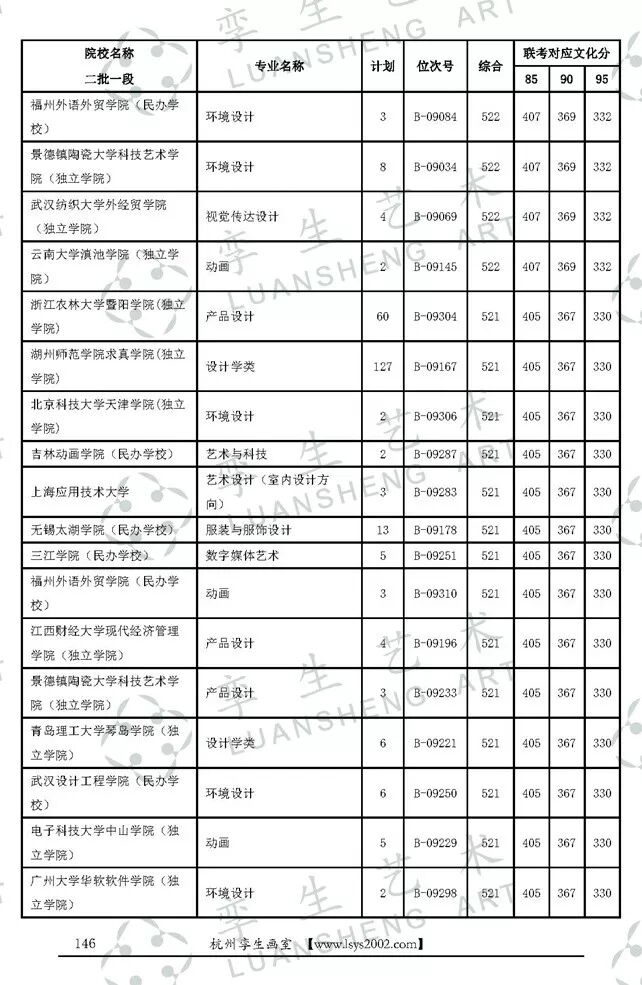 院校名称 专业名称 计划 位次号 综合 联考对应文化分
二批一段 85 90 95
福州外语外贸学院（民办学
校） 环境设计 3 B-09084 522 407 369 332
景德镇陶瓷大学科技艺术学
院（独立学院） 环境设计 8 B-09034 522 407 369 332
武汉纺织大学外经贸学院
（独立学院） 视觉传达设计 4 B-09069 522 407 369 332
云南大学滇池学院（独立学
院） 动画 2 B-09145 522 407 369 332
浙江农林大学暨阳学院(独立
学院) 产品设计 60 B-09304 521 405 367 330
湖州师范学院求真学院(独立
学院) 设计学类 127 B-09167 521 405 367 330
北京科技大学天津学院(独立
学院) 环境设计 2 B-09306 521 405 367 330
吉林动画学院（民办学校） 艺术与科技 2 B-09287 521 405 367 330
上海应用技术大学 艺术设计（室内设计方
向） 3 B-09283 521 405 367 330
无锡太湖学院（民办学校） 服装与服饰设计 13 B-09178 521 405 367 330
三江学院（民办学校） 数字媒体艺术 5 B-09251 521 405 367 330
福州外语外贸学院（民办学
校） 动画 3 B-09310 521 405 367 330
江西财经大学现代经济管理
学院（独立学院） 产品设计 4 B-09196 521 405 367 330
景德镇陶瓷大学科技艺术学
院（独立学院） 产品设计 3 B-09233 521 405 367 330
青岛理工大学琴岛学院（独
立学院） 设计学类 6 B-09221 521 405 367 330
武汉设计工程学院（民办学
校） 环境设计 6 B-09250 521 405 367 330
电子科技大学中山学院（独
立学院） 动画 5 B-09229 521 405 367 330
广州大学华软软件学院（独
立学院） 环境设计 2 B-09298 521 405 367 330
146 杭州孪生画室 【www.lsys2002.com】
孪生艺术
LUANSHENG ART